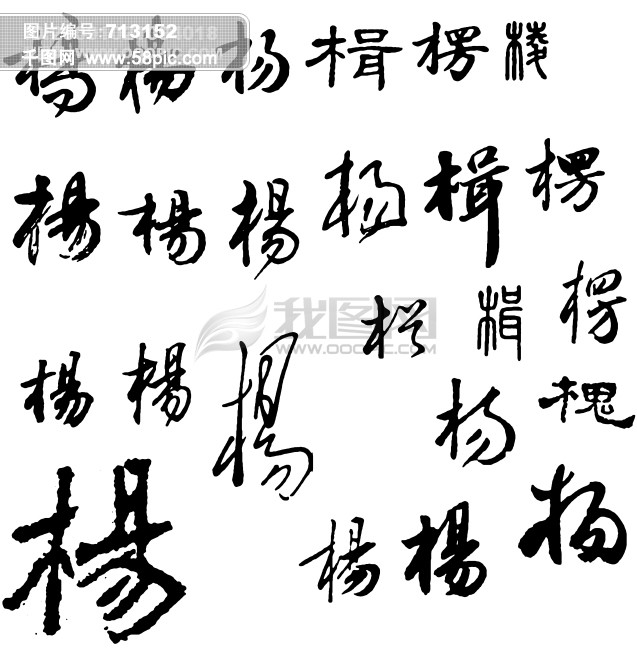 图片编号:713152
千图网 www.58pic.com
楊 楊 杨 楫 楞 棱
楊 楊 楊 杨 楫 楞
我图网
楫 楞
楊 楊 楊 杨 槐
楊 楊 楊 杨